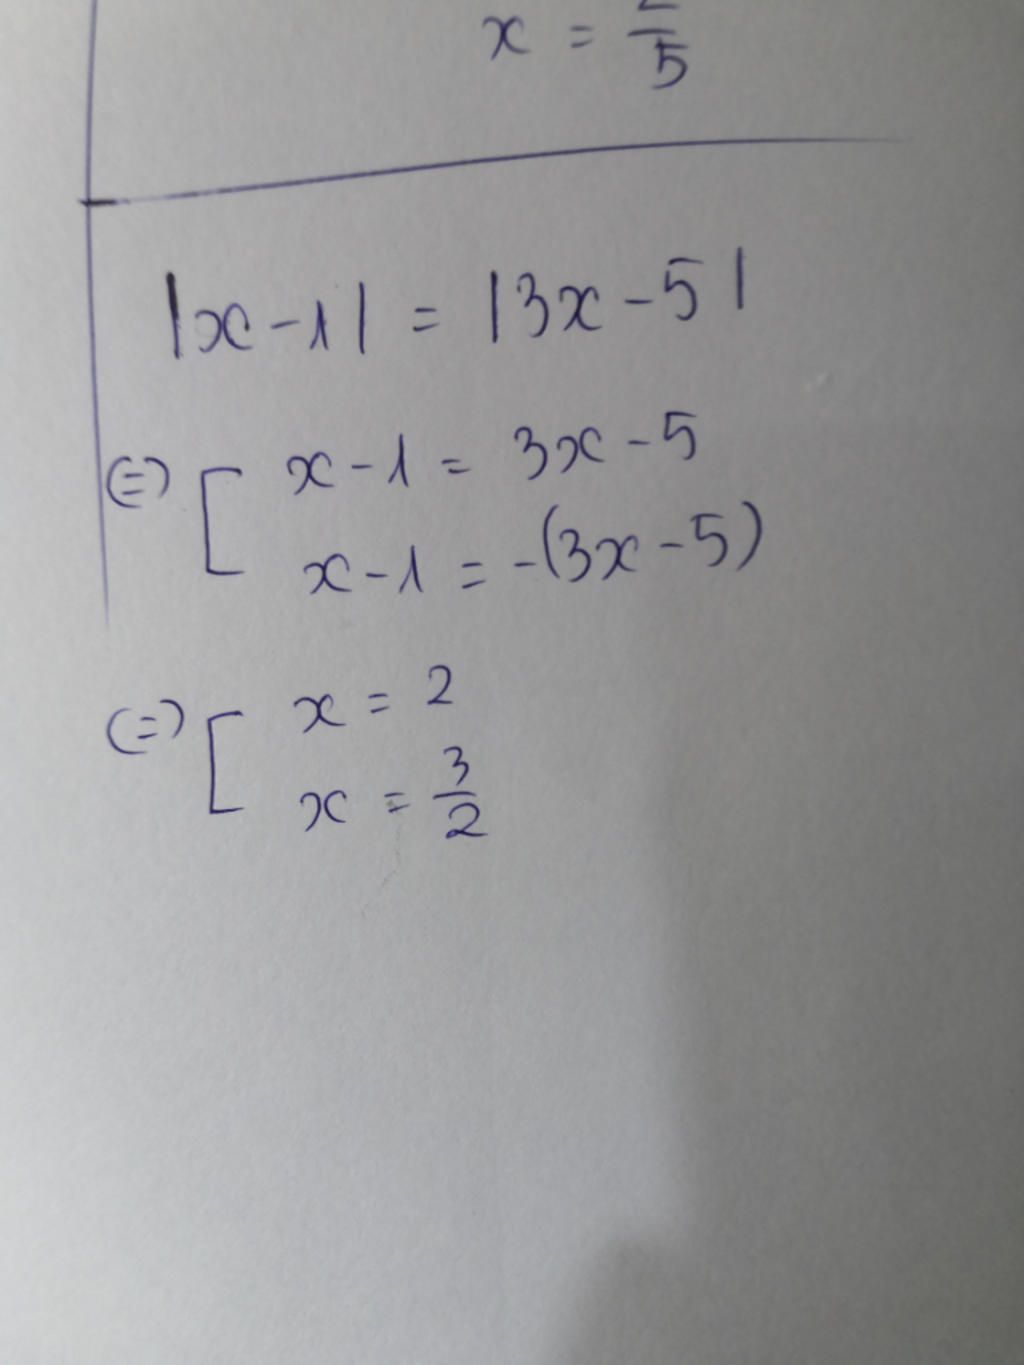 x = /5
|x-1| = |3x-5|
(=) [ x-1 = 3x-5
x-1 = -(3x-5)
(=) [ x = 2
x = 3/2